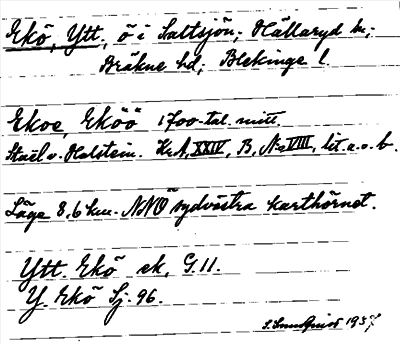 Ekö, Ytt, ö i Saltsjön; Hällaryd sn;
Bräkne hd; Blekinge l.
Ekoe, Eköö 1700-tal. mitt
Staël v. Holstein. Kr.A, XXIV, B, No VIII, lit. a. o. b.
Läge 8,6 km. NNÖ sydvästra karthörnet.
Ytt. Ekö ek, G.11.
Y. Ekö Sj. 96.
1937